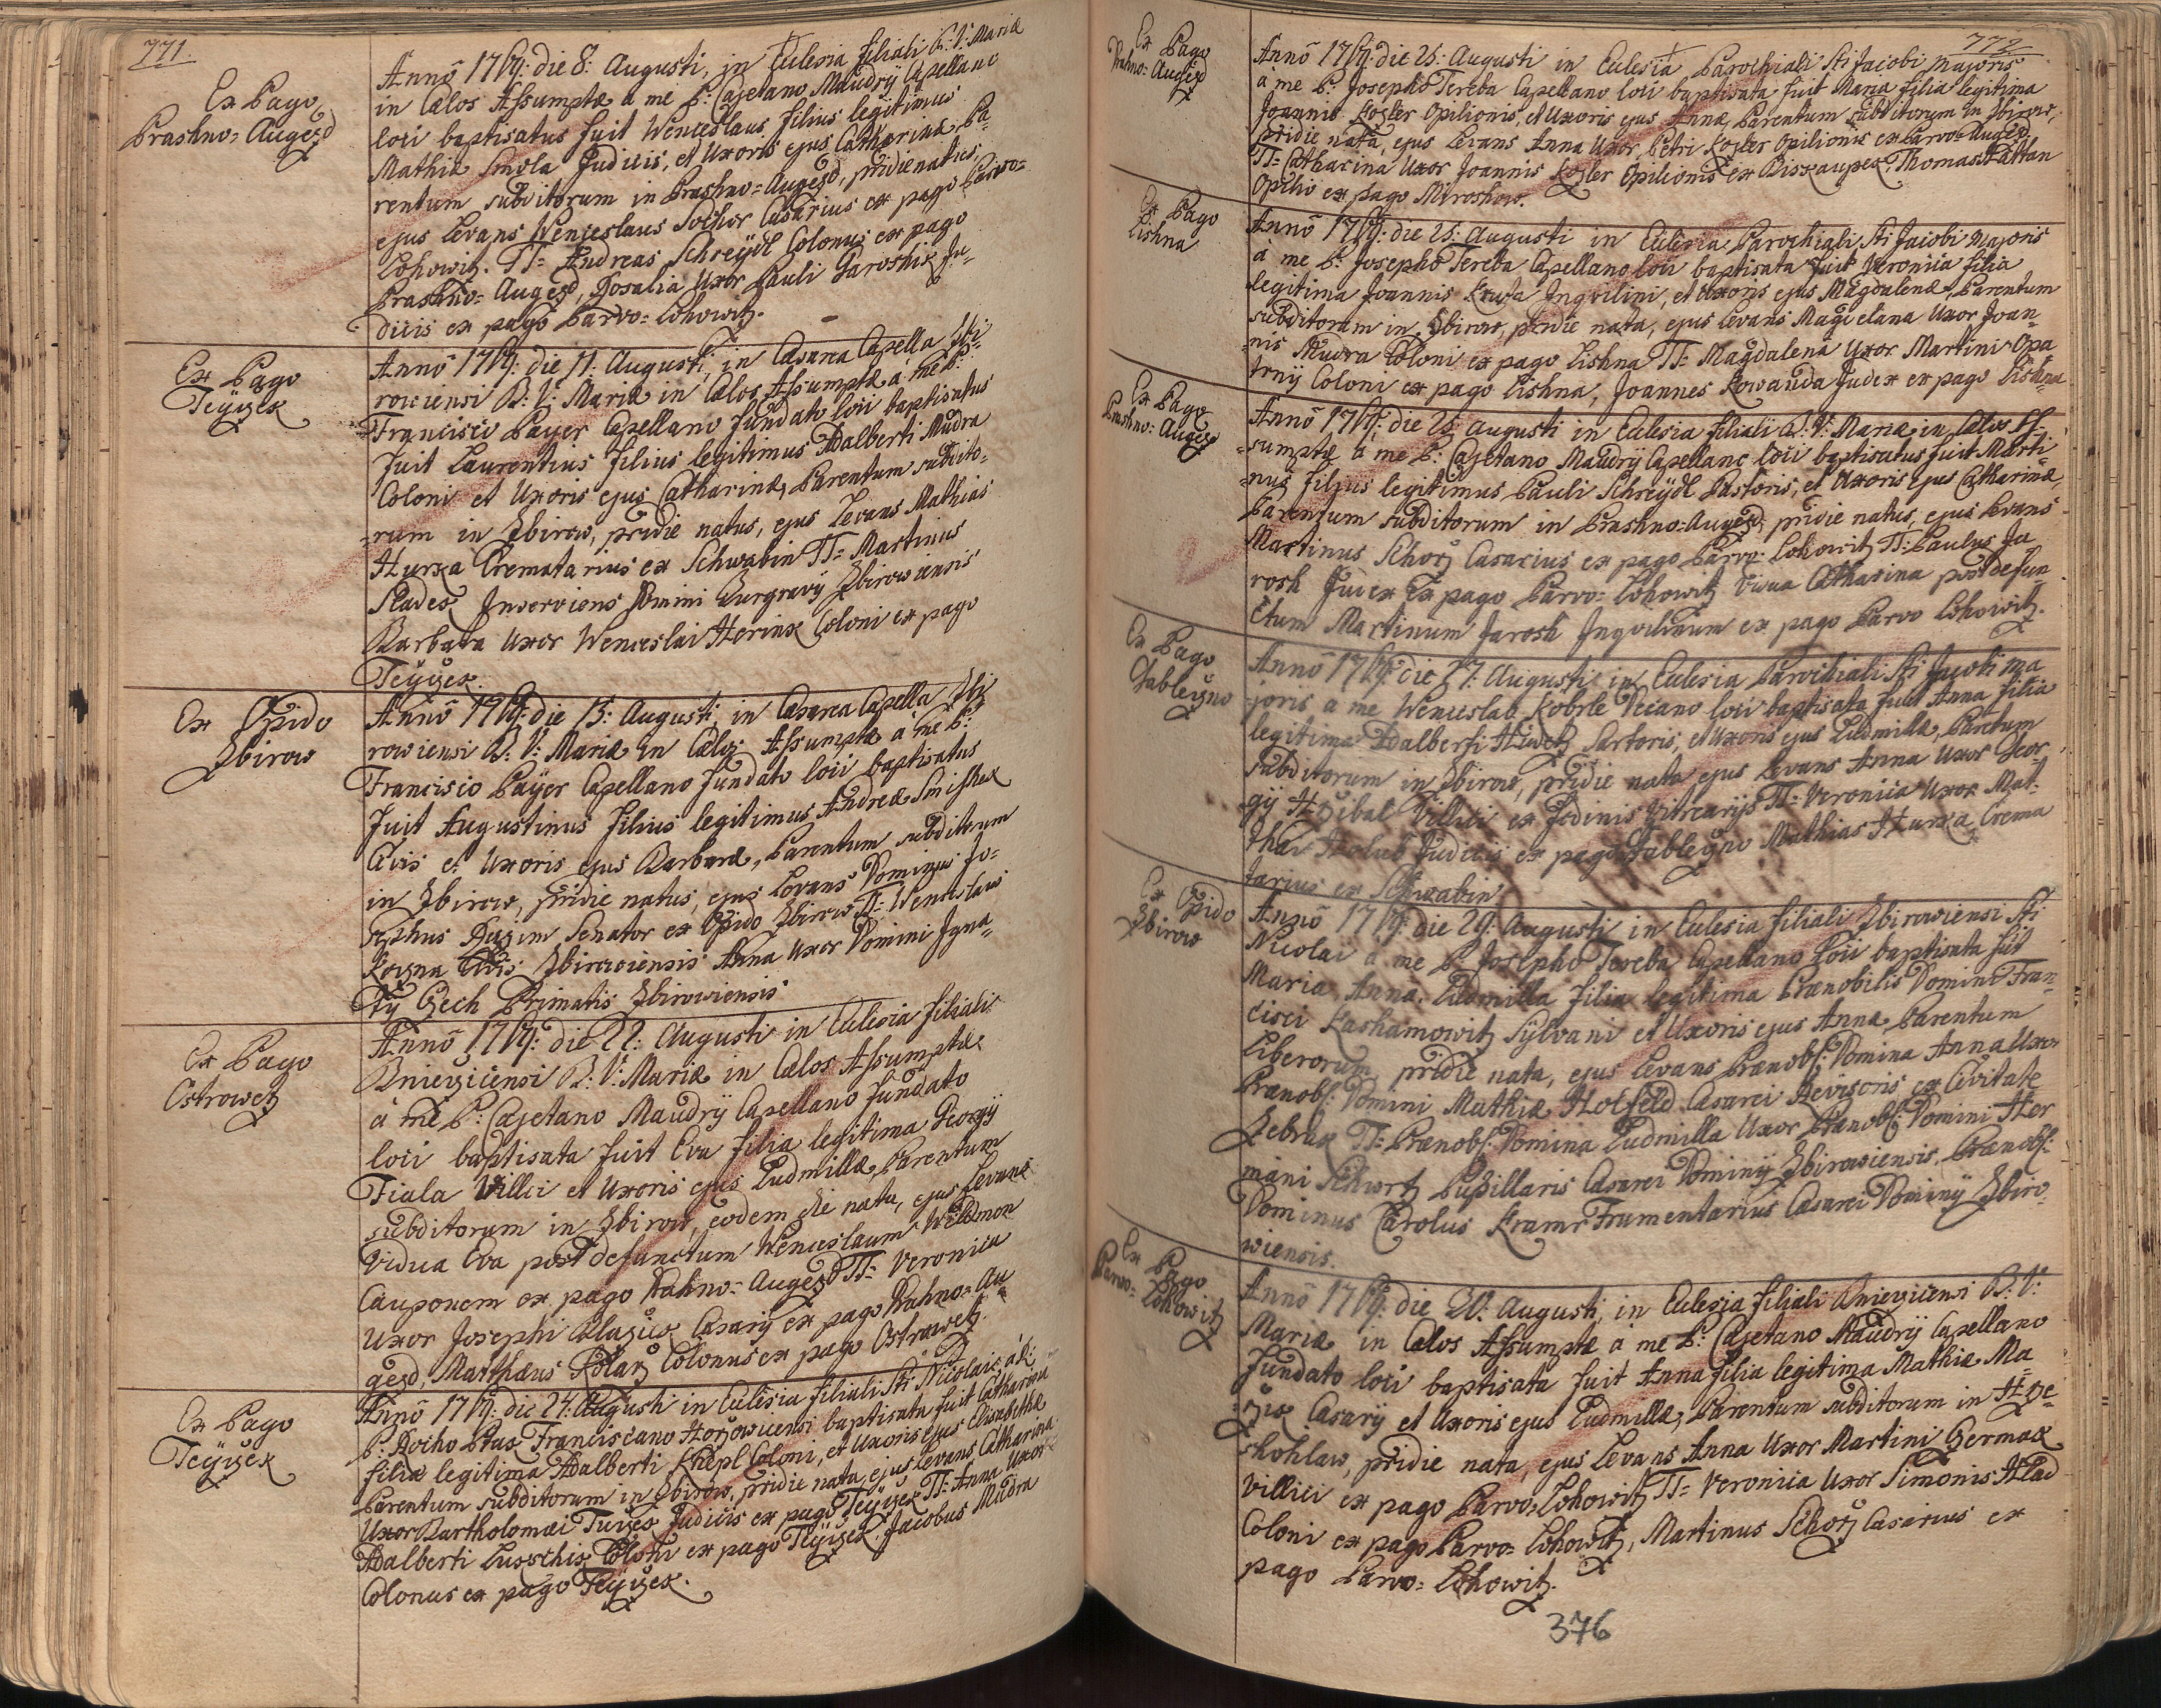 771.
Ex Pago
Prashno=Augezd
Annô 1769: die 8: Augusti, in Eclesia filiali B: V: Mariæ
in Cælos Assumptæ a me P: Cajetano Maudrÿ Capellano
loci baptisatus fuit Wenceslaus filius legitimus
Mathiæ Smola Judicis, et Uxoris ejus Catharinæ Pa=
rentum subditorum in Prashno=Augezd, pridie natus,
ejus Levans Wenceslaus Sochor Casarius ex pago Parvo=
Lohowitz. TT= Andreas Schreÿdl Colonus ex pago
Prashno=Augezd, Rosalia Uxor Pauli Jaroshik Ju=
dicis ex pago Parvo=Lohowitz.
Ex Pago
Teÿczek
Annô 1769: die 11: Augusti, in Cæsarea Capella Zbi=
rowiensi B: V: Mariæ in Cælos Assumptæ a me P:
Francisco Payer Capellano fundato loci baptisatus
fuit Laurentius filius legitimus Adalberti Mudra
Coloni et Uxoris ejus Catharinæ, Parentum subdito=
=rum in Zbirow, pridie natus, ejus Levans Mathias
Hurka Crematarius ex Schwabin TT= Martinus
Slades Inserviens Domini Burgravÿ Zbirowiensis
Barbara Uxor Wenceslai Herink Coloni ex pago
Teÿczek.
Ex Opido
Zbirow
Annô 1769: die 13: Augusti, in Cæsarea Capella Zbi
rowiensi B: V: Mariæ in Cælos Assumptæ a me P:
Francisco Paÿer Capellano fundato loci baptisatus
fuit Augustinus filius legitimus Andreæ Smishek
Civis et Uxoris ejus Barbaræ, Parentum subditorum
in Zbirow, pridie natus, ejus Levans Dominus Jo=
sephus Senator ex Opido Zbirow TT= Wenceslaus
Civis Zbirowiensis Anna Uxor Domini Igna=
tÿ Czech Primatis Zbirowiensis
Ex Pago
Ostrowetz
Annô 1769: die 22: Augusti in Eclesia filiali
Mnieziciensi B: V: Mariæ in Cælos Assumptæ
a me P: Cajetano Maudrÿ Capellano fundato
loci baptisata fuit Eva filia legitima Georgÿ
Fiala Villici et Uxoris ejus Ludmillæ, Parentum
subditorum in Zbirow, eodem die nata, ejus Levans
Vidua Eva post defunctum Wenceslaum Wildmon
Cauponem ex pago Kahno=Augezd TT= Veronica
Uxor Josephi Blazicz Casarÿ ex pago Kahno=Au
gezd, Matthæus Kolarz Colonus ex pago Ostrowetz.
Ex Pago
Teÿczek
Annô 1769: die 24: Augusti in Eclesia filiali Sti Nicolai â
P: Rocho Franciscano Horzowicensi baptisata fuit Catharina
filia legitima Adalberti Knepl Coloni, et Uxoris ejus Elisabethæ
Parentum subditorum in Zbirow, pridie nata, ejus Levans Catharina
Uxor Bartholomæi Turczes Judicis ex pago Teÿczek TT= Anna Uxor
Adalberti Coloni ex pago Teÿczek. Jacobus Mudra
Colonus ex pago Teÿczek.
772
Ex Pago
Kahno=Augezd
Annô 1769: die 25: Augusti in Eclesia Parochiali Sti Jacobi Majoris
a me P: Josepho Tereba Capellano loci baptisata fuit Maria filia legitima
Joannis Kozler Opilionis, et Uxoris ejus Annæ Parentum subditorum in Zbirow,
pridie nata, ejus Levans Anna Uxor Petri Kozler Opilionis ex Parvo=Augezd
TT= Catharina Uxor Joannis Kozler Opilionis ex Biskaupek, Thomas Pattan
Opilio ex pago Miroshow.
Ex Pago
Lishna
Annô 1769: die 25: Augusti in Eclesia Parochiali Sti Jacobi Majoris
a me P: Josepho Tereba Capellano loci baptisata fuit Veronica filia
legitima Joannis Kruta Inqvilini, et Uxoris ejus Magdalenæ, Parentum
subditorum in Zbirow, pridie nata, ejus Levans Magdelana Uxor Joan=
=nis Mudra Coloni ex pago Lishna TT= Magdalena Uxor Martini Opa
trnÿ Coloni ex pago Lishna, Joannes Kowanda Judex ex pago Lishna
Ex Pago
Prashno=Augezd
Annô 1769: die 25 Augusti in Eclesia filiali B: V: Mariæ in Cælos As=
=sumptæ a me P: Cajetano Maudrÿ Capellano loci baptisatus fuit Marti=
=nus filius legitimus Pauli Schreÿdl Pastoris, et Uxoris ejus Catharinæ,
Parentum subditorum in Prashno=Augezd, pridie natus, ejus Levans
Martinus Schorz Casarius ex pago Parvo=Lohowitz TT= Paulus Ja
rosh Judex Ex pago Parvo=Lohowitz Vidua Catharina post defun
ctum Martinum Jarosh Inqvilinum ex pago Parvo Lohowitz.
Ex Pago
Jableczno
Annô 1769: die 27: Augusti in Eclesia Parochiali Sti Jacobi ma
joris a me Wenceslao Kobrle Decano loci baptisata fuit Anna filia
legitima Adalberti Sartoris, et Uxoris ejus Ludmillæ, Parentum
subditorum in Zbirow, pridie nata ejus Levans Anna Uxor Geor=
gÿ Hrzibal Villici ex Fodinis Vitrearÿs TT= Veronica Uxor Mat=
thæi Holub Judicis ex pago Jableczno Mathias Hurka Crema
tarius ex Schwabin
Ex Opido
Zbirow
Annô 1769: die 29: Augusti in Eclesia filiali Zbirowiensi Sti
Nicolai a me P. Josepho Tereba Capellano loci baptisata fuit
Maria Anna Ludmilla filia legitima Prænobilis Domini Fran=
cisci Kashamowitz Sÿlvani et Uxoris ejus Annæ, Parentum
Liberorum, pridie nata, ejus Levans Prænobl: Domina Anna Uxor
Prænobl: Domini Mathiæ Hotfeld Cæsarei Revisoris ex Civitate
Zebrak TT= Prænobl: Domina Ludmilla Uxor Prænobl: Domini Her
mani Schwrtz Pupillaris Cæsarei Dominÿ Zbirowiensis, Prænobl:
Dominus Carolus Kramr Frumentarius Cæsarei Dominÿ Zbiro=
wiensis.
Ex Pago
Parvo=Lohowitz
Annô 1769: die 30: Augusti, in Eclesia filiali Mnieziciensi B: V:
Mariæ in Cælos Assumptæ a me P: Cajetano Maudrÿ Capellano
fundato loci baptisata fuit Anna filia legitima Mathiæ Ma
Casarÿ et Uxoris ejus Ludmillæ, Parentum subditorum in Hrze=
shohlaw, pridie nata, ejus Levans Anna Uxor Martini Czermak
Villici ex pago Parvo=Lohowitz TT= Veronica Uxor Simonis Hlad
Coloni ex pago Parvo=Lohowitz, Martinus Schorz Casarius ex
pago Parvo=Lohowitz.
376